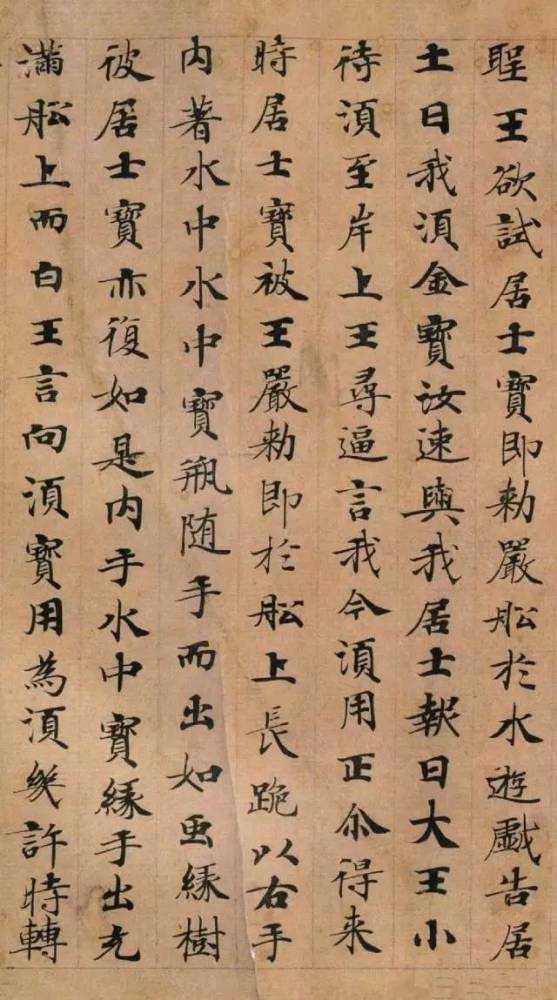 聖王欲試居士寶即勑嚴舩於水遊戱告居
士曰我湏金寶汝速與我居士報曰大王小
待湏至岸上王尋逼言我今湏用正尒得来
時居士寶被王嚴勑即於舩上長跪以右手
内著水中水中寶瓶随手而出如虫緣樹
彼居士寶亦復如是内手水中寶緣手出充
滿舩上而白王言向湏寶用為湏幾許時轉